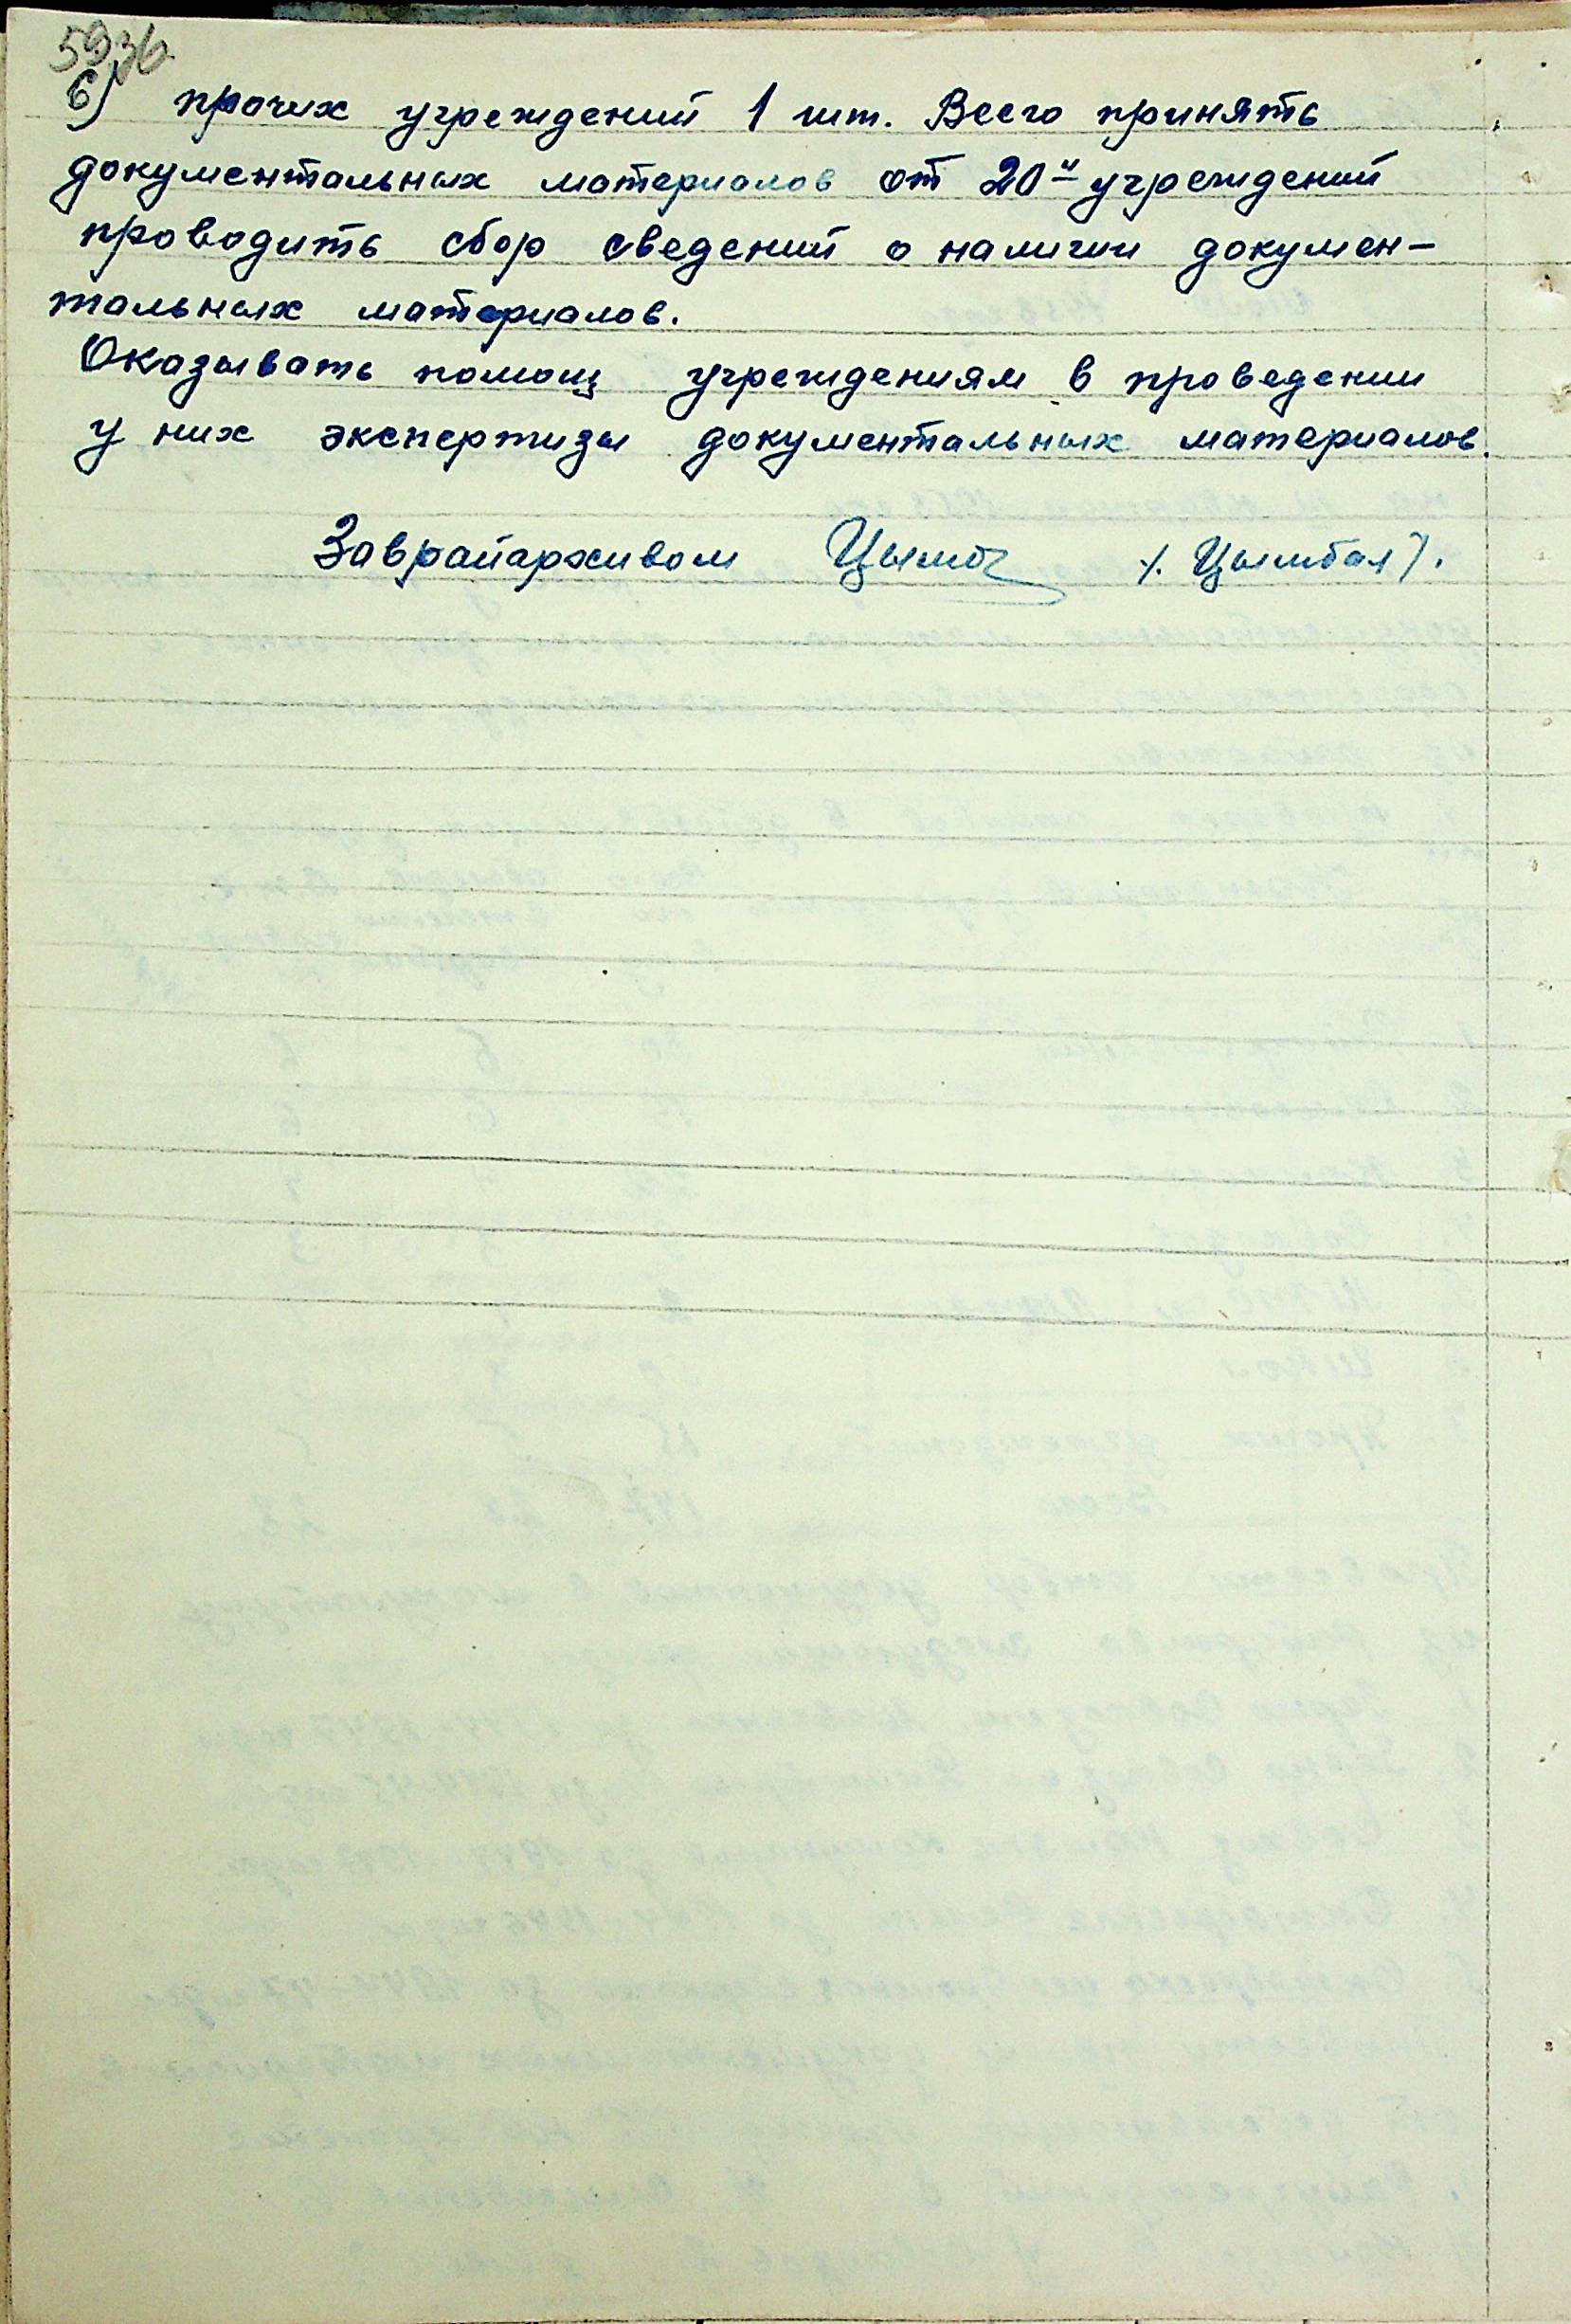 6) прочих учреждений 1 шт. Всего принять
документальных материалов от 20и учреждений
проводить сбор сведений о наличии докумен-
тальных материалов.
Оказывать помощ учреждениям в проведении
у них экспертизы документальных материалов.
Заврайархивом Цымб /. Цымбал /.